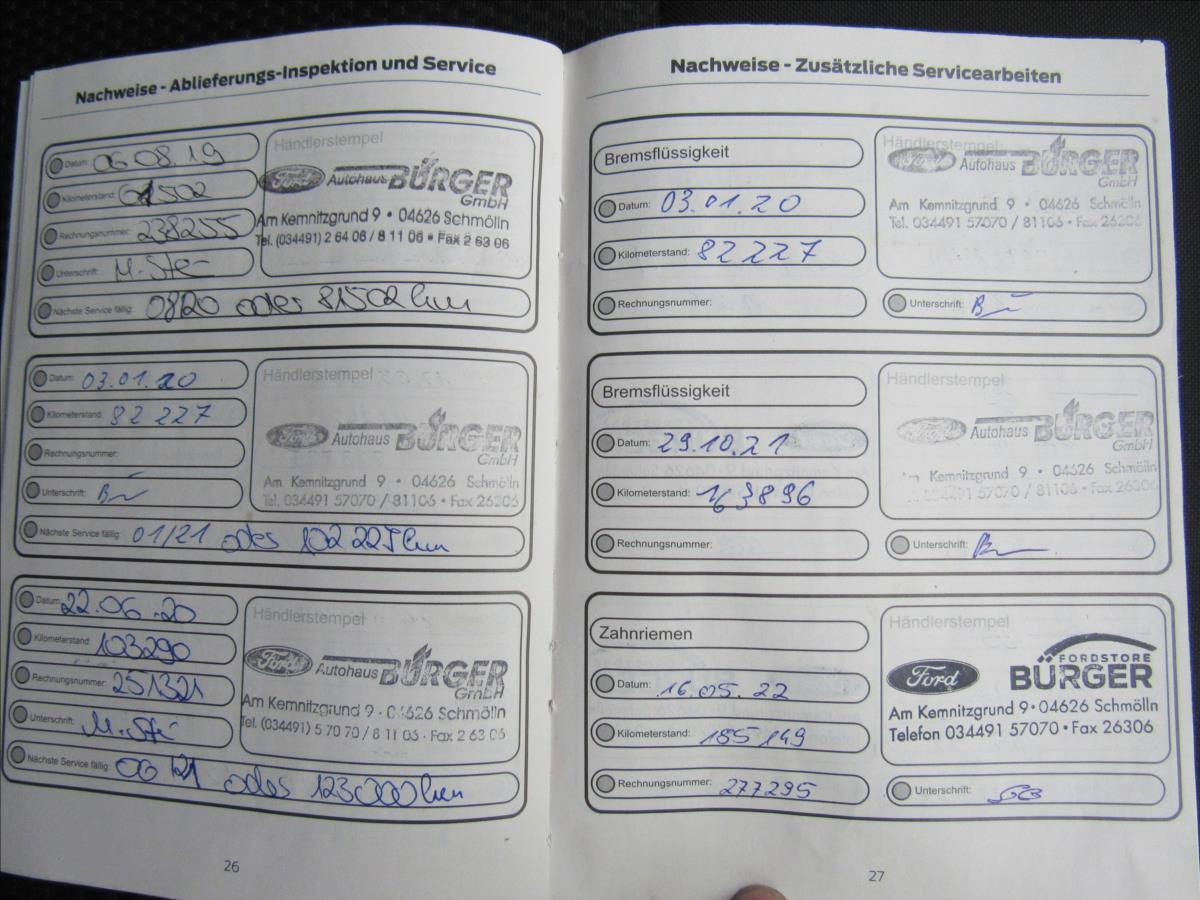 Nachweise - Ablieferungs-Inspektion und Service
Datum: 06.08.19
Kilometerstand: 61502
Rechnungsnummer: 238255
Unterschrift: M. Ste
Nächste Service fällig: 08/20 oder 81502 km
Händlerstempel
Ford Autohaus BÜRGER
GmbH
Am Kemnitzgrund 9 • 04626 Schmölln
Tel. (034491) 2 64 06 / 8 11 06 • Fax 2 63 06
Datum: 03.01.20
Kilometerstand: 82 227
Rechnungsnummer:
Unterschrift:
Nächste Service fällig: 01/21 oder 102 227 km
Händlerstempel
Ford Autohaus BÜRGER
GmbH
Am Kemnitzgrund 9 • 04626 Schmölln
Tel. 034491 57070 / 81106 • Fax 26306
Datum: 22.06.20
Kilometerstand: 103290
Rechnungsnummer: 251321
Unterschrift: M. Ste
Nächste Service fällig: 06/21 oder 123000 km
Händlerstempel
Ford Autohaus BÜRGER
GmbH
Am Kemnitzgrund 9 • 04626 Schmölln
Tel. (034491) 5 70 70 / 8 11 06 • Fax 2 63 06
26
Nachweise - Zusätzliche Servicearbeiten
Bremsflüssigkeit
Datum: 03.01.20
Kilometerstand: 82 227
Rechnungsnummer:
Händlerstempel
Ford Autohaus BÜRGER
GmbH
Am Kemnitzgrund 9 • 04626 Schmölln
Tel. 034491 57070 / 81106 • Fax 26306
Unterschrift:
Bremsflüssigkeit
Datum: 29.10.21
Kilometerstand: 163896
Rechnungsnummer:
Händlerstempel
Ford Autohaus BÜRGER
GmbH
Am Kemnitzgrund 9 • 04626 Schmölln
Tel. 034491 57070 / 81106 • Fax 26306
Unterschrift:
Zahnriemen
Datum: 16.05.22
Kilometerstand: 185 149
Rechnungsnummer: 277295
Händlerstempel
Ford FORDSTORE
BÜRGER
Am Kemnitzgrund 9 • 04626 Schmölln
Telefon 034491 57070 • Fax 26306
Unterschrift:
27